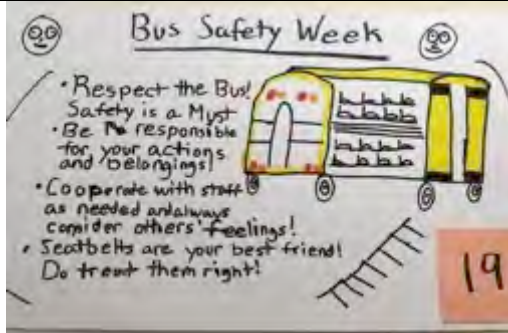 Bus Safety Week
• Respect the Bus!
Safety is a Must
• Be responsible
for your actions
and belongings!
• Cooperate with staff
as needed and always
consider others' feelings!
• Seatbelts are your best friend!
Do treat them right!
19